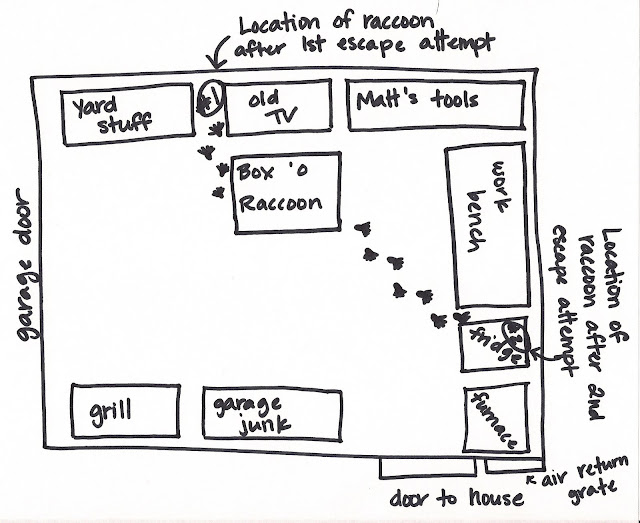 Location of raccoon
after 1st escape attempt
Yard
stuff
#1
old
TV
Matt's tools
Box 'o
Raccoon
work
bench
garage door
Location of
raccoon after 2nd
escape attempt
fridge
#2
grill
garage
junk
furnace
door to house
air return
grate